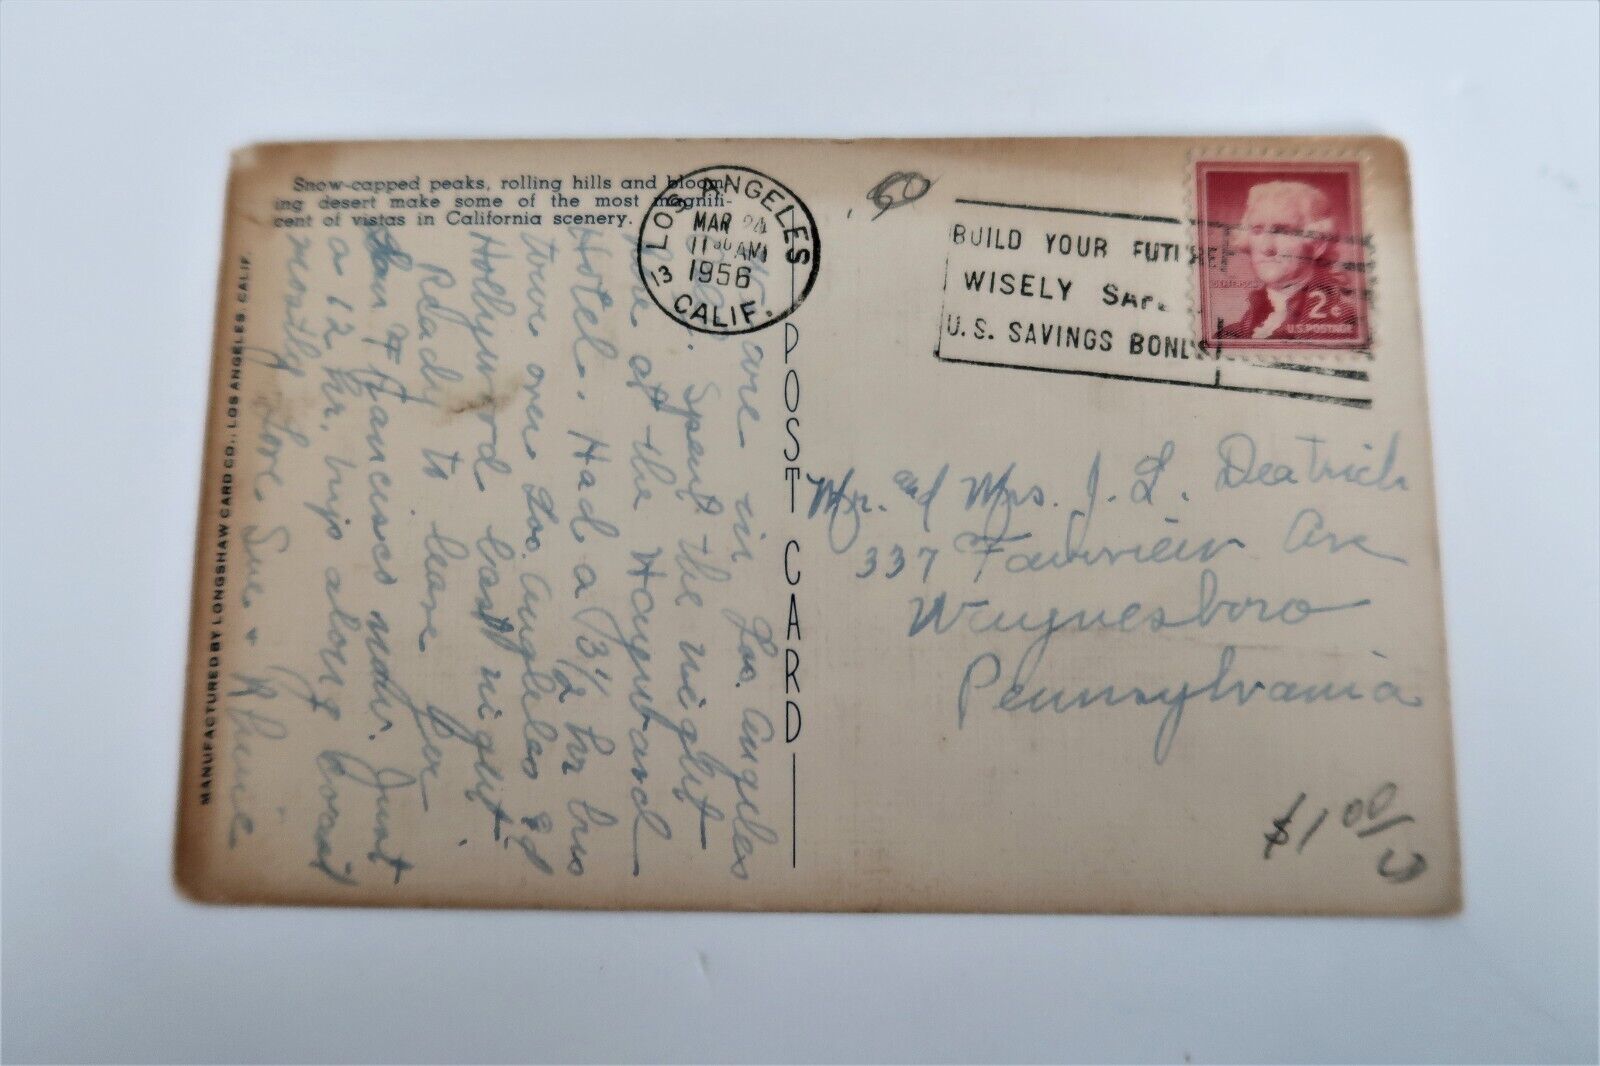 Snow-capped peaks, rolling hills and bloom-
ing desert make some of the most magnifi-
cent of vistas in California scenery.
MANUFACTURED BY LONGSHAW CARD CO., LOS ANGELES, CALIF.
LOS ANGELES
CALIF.
13
MAR 24
11 AM
1956
POST CARD
60
BUILD YOUR FUTURE
WISELY
U.S. SAVINGS BONDS
JEFFERSON
2¢
U.S. POSTAGE
are in Los. Angeles
Spent the night
at the Hayward
Hotel. Had a 3½ hr bus
tour over Los. Angeles &
Hollywood last night.
Ready to leave for
San Francisco now. Just
a 12 hr. trip along coast
mostly Love Sue +
Mr. and Mrs. J. L. Deatrich
337 Fairview Ave
Waynesboro
Pennsylvania
$1.00/3